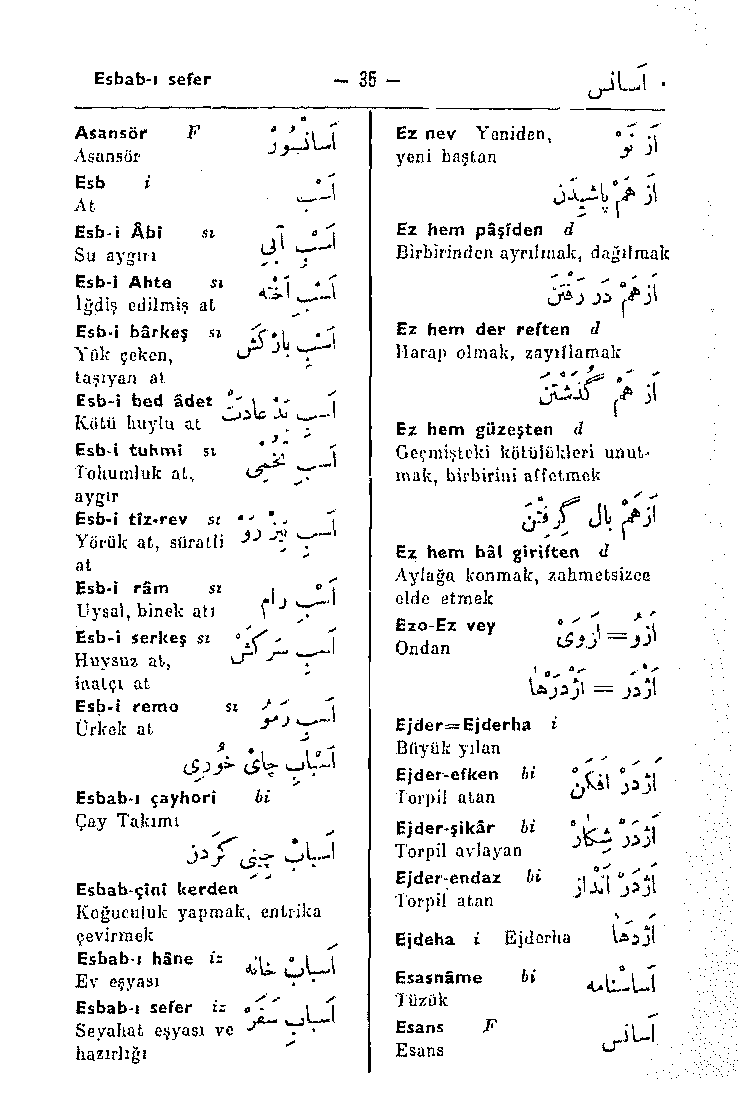 Esbab-ı sefer — 35 — آسانس
Asansör F آسانسور
Asansör
Esb i اسب
At
Esb-i Âbî sı اسب آبی
Su aygırı
Esb-i Ahte sı اسب آخته
Iğdiş edilmiş at
Esb-i bârkeş sı اسب بارکش
Yük çeken,
taşıyan at
Esb-i bed âdet اسب بد عادت
Kötü huylu at
Esb-i tuhmi sı اسب تخمی
Tohumluk at,
aygır
Esb-i tîz-rev sı اسب تیز رو
Yörük at, süratli
at
Esb-i râm sı اسب رام
Uysal, binek atı
Esb-i serkeş sı اسب سرکش
Huysuz at,
inatçı at
Esb-i remo sı اسب رمو
Ürkek at
اسباب چای خوری
Esbab-ı çayhorî bi
Çay Takımı
اسباب چینی کردن
Esbab-çînî kerden
Koğuculuk yapmak, entrika
çevirmek
Esbab-ı hâne iz اسباب خانه
Ev eşyası
Esbab-ı sefer iz اسباب سفر
Seyahat eşyası ve
hazırlığı
Ez nev Yeniden, از نو
yeni baştan
از هم پاشیدن
Ez hem pâşîden d
Birbirinden ayrılmak, dağılmak
از هم در رفتن
Ez hem der reften d
Harap olmak, zayıflamak
از هم گذشتن
Ez hem güzeşten d
Geçmişteki kötülükleri unut-
mak, birbirini affetmek
از هم بال گرفتن
Ez hem bâl giriften d
Aylağa konmak, zahmetsizce
elde etmek
Ezo-Ez vey ازو = ازوی
Ondan
اژدر = اژدرها
Ejder=Ejderha i
Büyük yılan
Ejder-efken bi اژدر افکن
Torpil atan
Ejder-şikâr bi اژدر شکار
Torpil avlayan
Ejder-endaz bi اژدر انداز
Torpil atan
Ejdeha i Ejderha اژدها
Esasnâme bi اساسنامه
Tüzük
Esans F اسانس
Esans